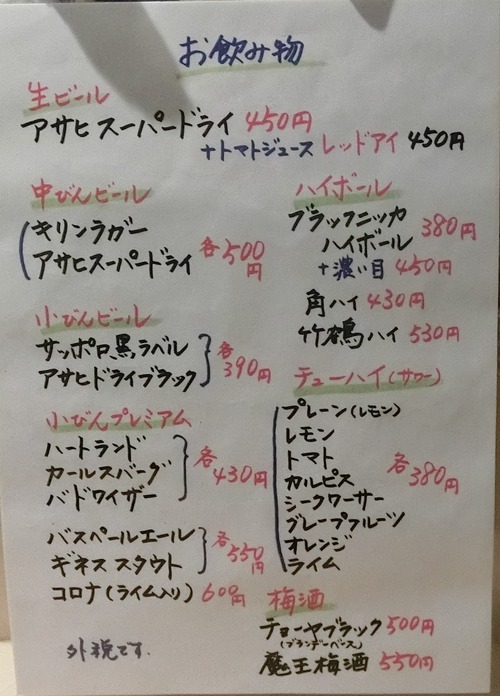 お飲み物
生ビール
アサヒスーパードライ 450円
+トマトジュース レッドアイ 450円
中びんビール
キリンラガー
アサヒスーパードライ
各500円
小びんビール
サッポロ黒ラベル
アサヒドライブラック
各390円
小びんプレミアム
ハートランド
カールスバーグ
バドワイザー
各430円
バスペールエール
ギネススタウト
各550円
コロナ(ライム入り) 600円
外税です.
ハイボール
ブラックニッカ
ハイボール 380円
+濃い目 450円
角ハイ 430円
竹鶴ハイ 530円
チューハイ(サワー)
プレーン(レモン)
レモン
トマト
カルピス
シークワーサー
グレープフルーツ
オレンジ
ライム
各380円
梅酒
チョーヤブラック 500円
(ブランデーベース)
魔王梅酒 550円